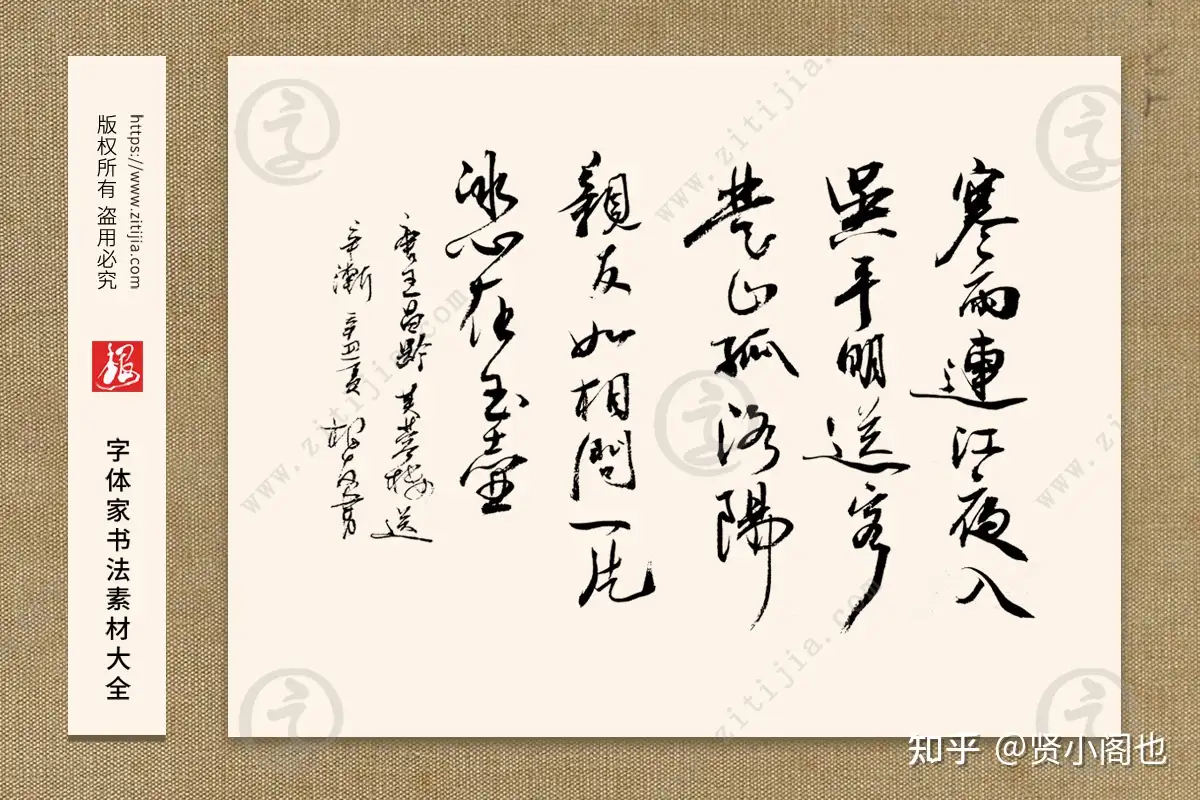 寒雨連江夜入
吳平明送客
楚山孤洛陽
親友如相問一片
冰心在玉壺
唐王昌齡芙蓉樓送
辛漸 辛丑夏
https://www.zitijia.com
版权所有 盗用必究
字体家书法素材大全
www.zitijia.com
www.zitijia.com
www.zitijia.com
知乎 @贤小阁也